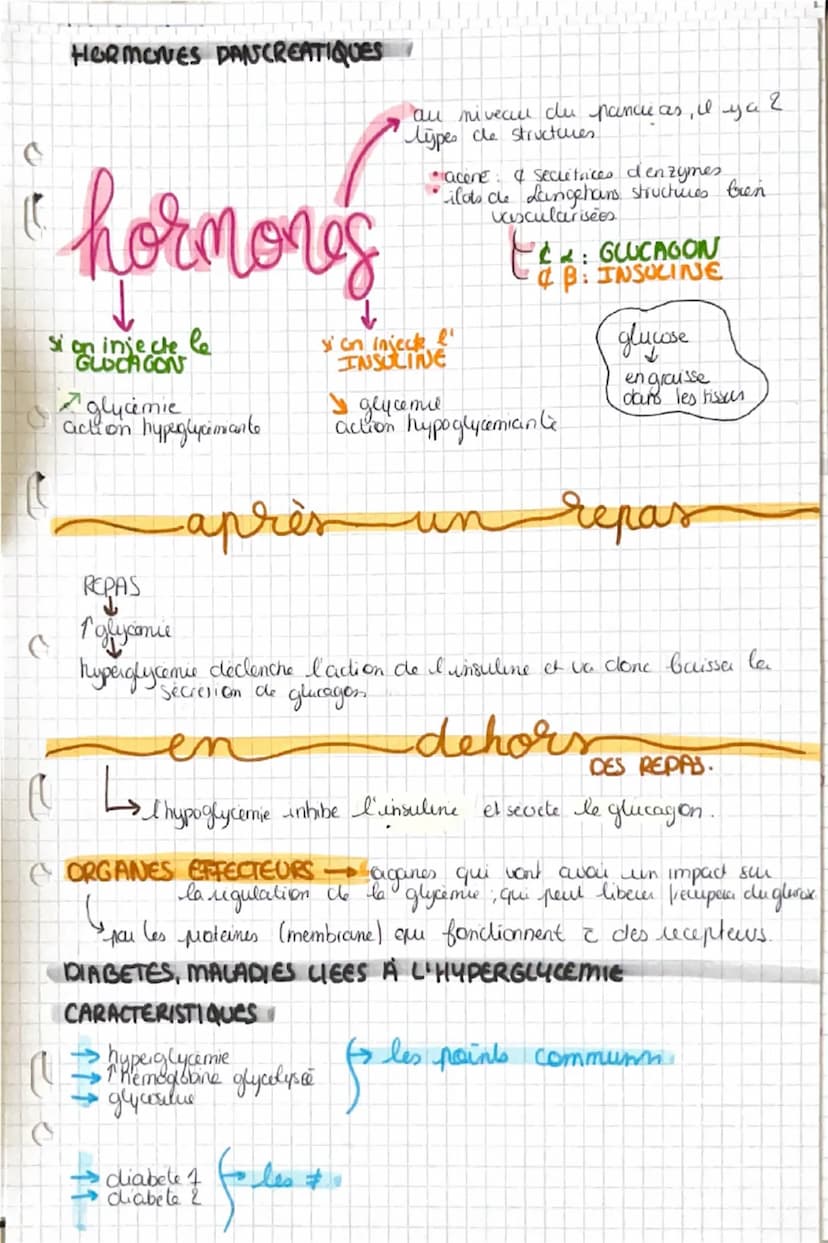 HORMONES PANCREATIQUES
au niveau du pancreas, il y a 2
types de structures
• acini : ¢ sécrétrices d'enzymes
• ilots de Langehans structures bien
vascularisées
hormones
¢ α : GLUCAGON
¢ β : INSULINE
si on injecte le
GLUCAGON
↗ glycémie
action hyperglycémiante
si on injecte l'
INSULINE
↘ glycemie
action hypoglycemiante
glucose
↓
en graisse
dans les tissus
après un repas
REPAS
↓
↑ glycémie
↓
hyperglycémie déclenche l'action de l'insuline et va donc baisser la
sécrétion de glucagon
en dehors
DES REPAS.
↳ l'hypoglycémie inhibe l'insuline et secrete le glucagon.
ORGANES EFFECTEURS → organes qui vont avoir un impact sur
la régulation de la glycémie, qui peut liberer / recuperer du glucose
↳ par les proteines (membrane) qui fonctionnent c̄ des recepteurs.
DIABETES, MALADIES LIEES À L'HYPERGLYCEMIE
CARACTERISTIQUES
→ hyperglycemie
→ ↑ hémoglobine glycolysée
→ glycosurie
→ les points communs
→ diabete 1
→ diabete 2
→ les ≠